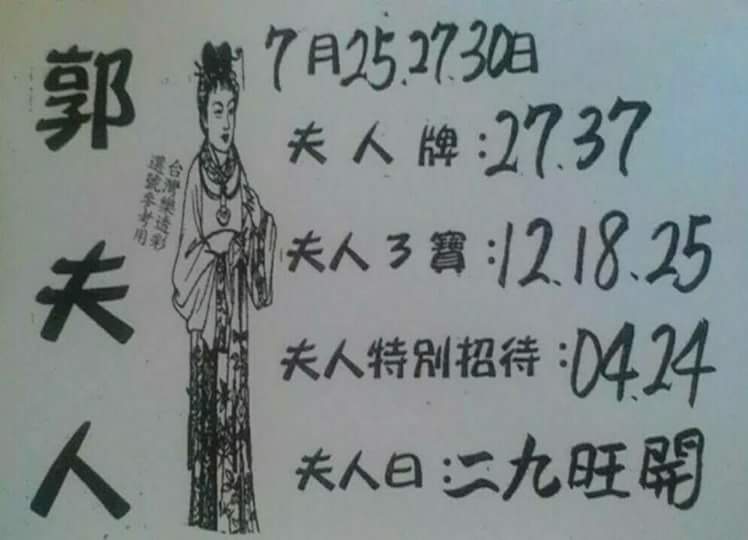 郭夫人
台灣樂透彩
選號參考用
7月25.27.30日
夫人牌:27.37
夫人3寶:12.18.25
夫人特別招待:04.24
夫人曰:二九旺開